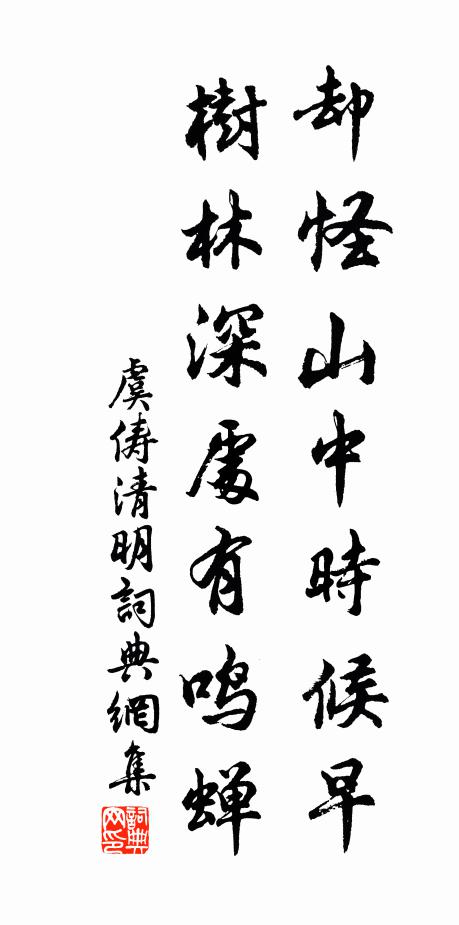 却怪山中時候早
樹林深處有鸣蝉
虞儔清明詞典網集
詞典网印